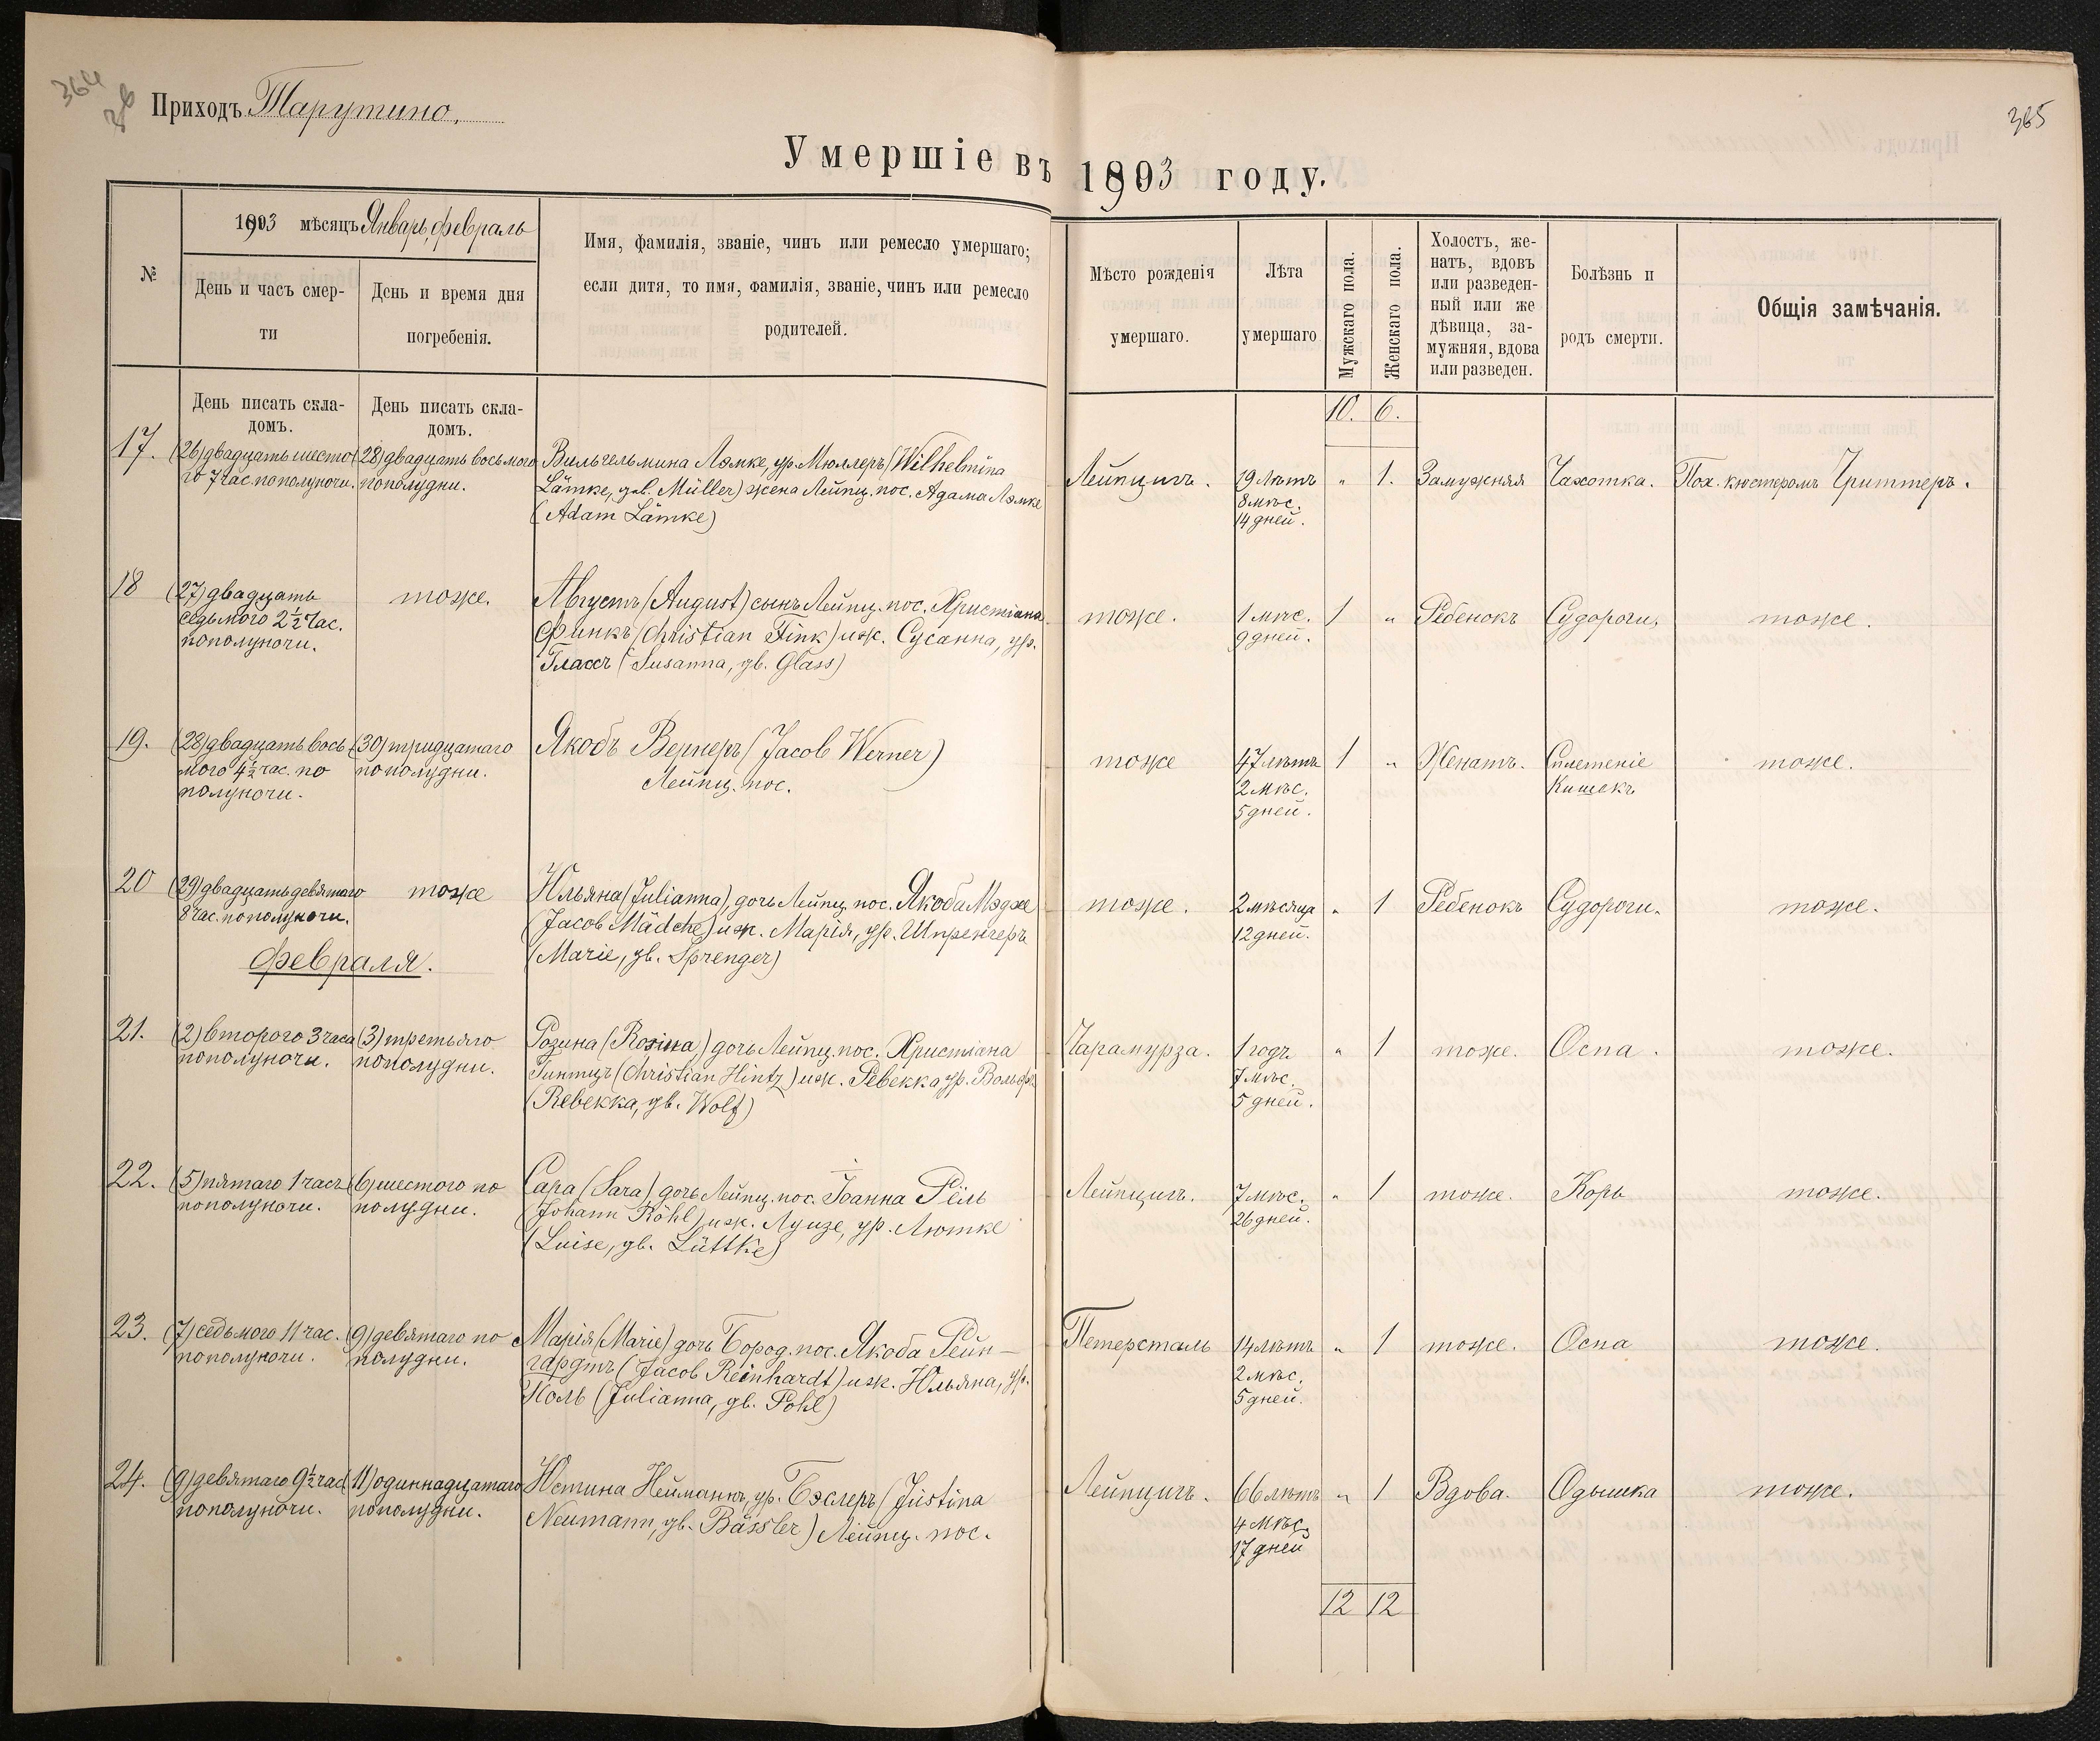 364
Приходъ Тарутино.
365
Умершіе въ 1893 году.
№
1893 мѣсяцъ Январь, февраль
День и часъ смер-
ти
День и время дня
погребенія.
Имя, фамилія, званіе, чинъ или ремесло умершаго;
если дитя, то имя, фамилія, званіе, чинъ или ремесло
родителей.
Мѣсто рожденія
умершаго.
Лѣта
умершаго
Мужскаго пола.
Женскаго пола.
Холостъ, же-
натъ, вдовъ
или разведен-
ный или же
дѣвица, за-
мужняя, вдова
или разведен.
Болѣзнь и
родъ смерти.
Общія замѣчанія.
День писать скла-
домъ.
День писать скла-
домъ.
10. 6.
17.
(26) двадцать шесто
го 7 час. пополуночи.
(28) двадцать восьмого
пополудни.
Вильгельмина Лэмке, ур. Мюллеръ (Wilhelmina
Lämke, geb. Müller) жена Лейпц. пос. Адама Лэмке
(Adam Lämke)
Лейпцигъ.
19 Лѣтъ
8 мѣс.
14 дней.
„ 1.
Замужняя
Чахотка.
Пох. кюстеромъ Гриттеръ.
18
(27) двадцать
седьмого 2½ час.
пополуночи.
тоже.
Августъ (August) сынъ Лейпц. пос. Христіана
Финкъ (Christian Fink) и ж. Сусанна, ур.
Глассъ (Susanna, gb. Glass)
тоже.
1 мѣс.
9 дней.
1 „
Ребенокъ
Судороги.
тоже.
19.
(28) двадцать вось
мого 4½ час. по
полуночи.
(30) тридцатаго
пополудни.
Якобъ Вернеръ (Jacob Werner)
Лейпц. пос.
тоже
47 лѣтъ
2 мѣс.
5 дней.
1 „
Женатъ.
Сплетеніе
Кишекъ
тоже.
20
(29) двадцать девятаго
8 час. пополуночи.
тоже
Юльяна (Julianna), дочь Лейпц. пос. Якоба Мэдхе
(Jacob Mädche) и ж. Марія, ур. Шпренгеръ
(Marie, gb. Sprenger)
тоже.
2 мѣсяца
12 дней.
„ 1
Ребенокъ
Судороги.
тоже.
февраля.
21.
(2) второго 3 часа
пополуночи.
(3) третьяго
пополудни.
Розина (Rosina,) дочь Лейпц. пос. Христіана
Гинтцъ (Christian Hintz) и ж. Ребекка ур. Вольфъ
(Rebekka, gb. Wolf)
Чарамурза.
1 годъ
7 мѣс.
5 дней.
„ 1
тоже.
Оспа.
тоже.
22.
(5) пятаго 1 часъ
пополуночи.
(6) шестого по
полудни.
Сара (Sara) дочь Лейпц. пос. Іоанна Рёль
(Johann Röhl) и ж. Луизе, ур. Лютке
(Luise, gb. Lüttke)
Лейпцигъ.
7 мѣс.
26 дней.
„ 1
тоже.
Корь
тоже.
23.
(7) седьмого 11 час.
пополуночи.
(9) девятаго по
полудни.
Марія (Marie) дочь Бород. пос. Якоба Рейн-
гардтъ (Jacob Reinhardt) и ж. Юльяна, ур.
Поль (Julianna, gb. Pohl)
Петерсталь
14 лѣтъ
2 мѣс.
5 дней.
„ 1
тоже.
Оспа
тоже.
24.
(9) девятаго 9½ час
пополуночи.
(11) одиннадцатаго
пополудни.
Юстина Нейманнъ, ур. Бэслеръ (Justina
Neumann, gb. Bässler) Лейпц. пос.
Лейпцигъ.
66 лѣтъ
4 мѣс.
17 дней
„ 1
Вдова.
Одышка
тоже.
12 12